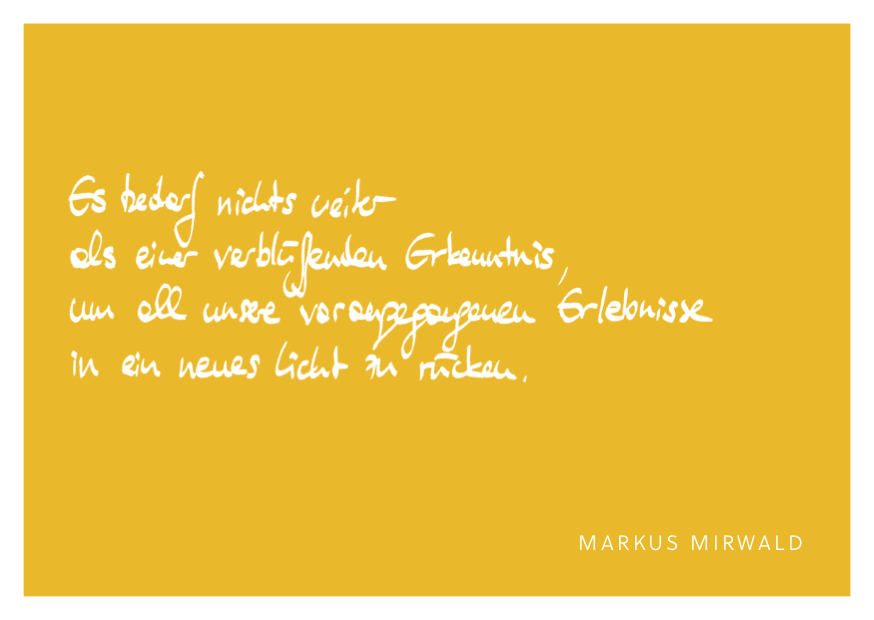 Es bedarf nichts weiter
als einer verblüffenden Erkenntnis,
um all unsere vorangegangenen Erlebnisse
in ein neues Licht zu rücken.
MARKUS MIRWALD